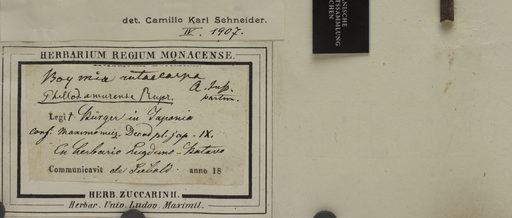 det. Camillo Karl Schneider.
IV. 1907.
ANISCHE
TSSAMMLUNG
CHEN
HERBARIUM REGIUM MONACENSE.
Boymia rutaecarpa
A. Juss.
Phellod. amurense Rupr. partim.
Legit Bürger in Japonia
conf. Maximowicz. Decad. pl. jap. IX.
Ex herbario Lugduno-Batavo
Communicavit de Siebold anno 18
HERB. ZUCCARINII.
Herbar. Univ. Ludov. Maximil.